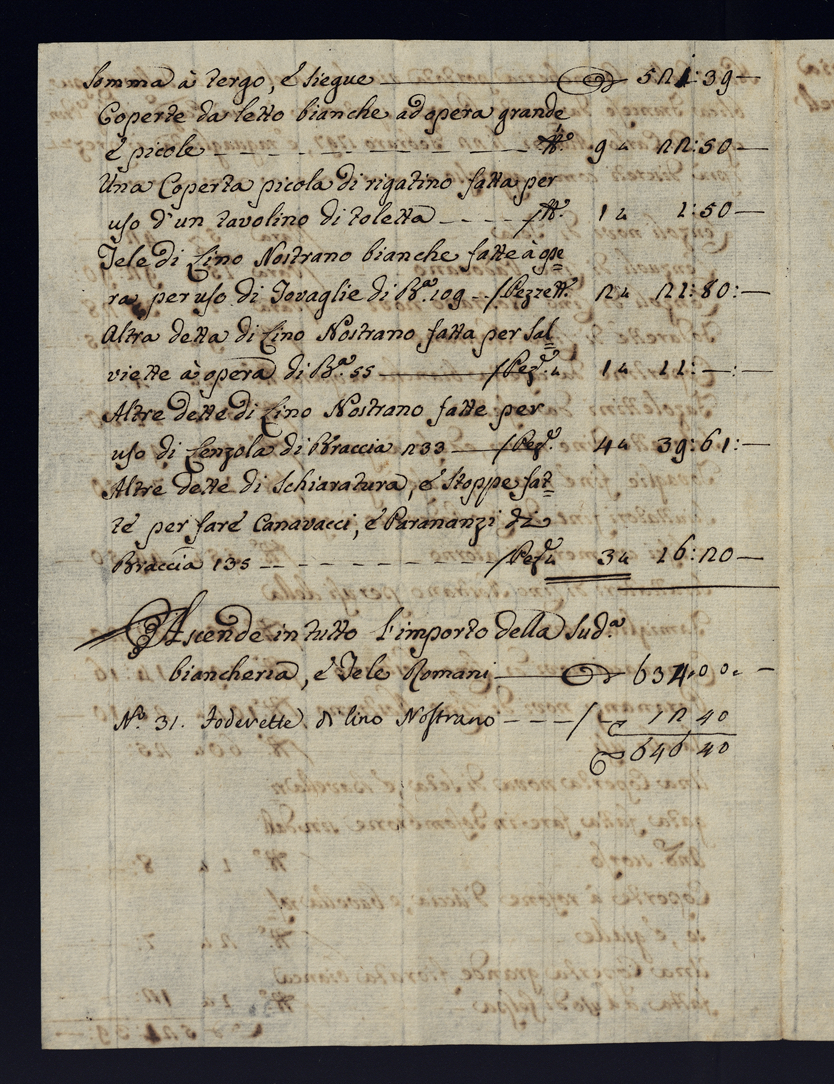 Somma à tergo, é siegue ——— 521:39—
Coperte da letto bianche ad opera grande
é picole - - - - - - - - N.° 9 „ 22:50—
Una Coperta picola di rigatino fatta per
uso d'un tavolino di toletta - - - - / N.° 1 „ 1:50—
Tele di Lino Nostrano bianche fatte à ope=
ra, per uso di Tovaglie di B.a 109 - - / Pezze N.° 2 „ 21:80:—
Altra detta di Lino Nostrano fatta per sal=
viette à opera di B.a 55 ——— / Pez.a „ 1 „ 11:—:—
Altre dette di Lino Nostrano fatte per
uso di Lenzola di Braccia 233 —— / Pez.e 4 „ 39:61:—
Altre dette di Schiaratura, é Stoppe fat=
te per fare Canavacci, é Parananzi di
Braccia 135 - - - - - - - - / Pez.e „ 3 „ 16:20—
Ascende in tutto l'importo della Sud.a
biancheria, é Tele Romani ——— 634.00. —
N.° 31. Foderette di lino Nostrano - - - / - 12 40
646 40